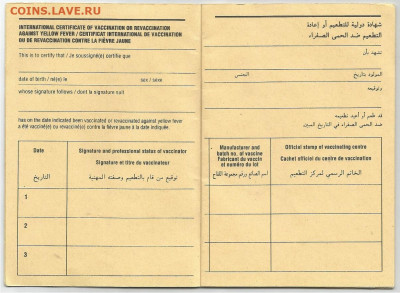 COINS.LAVE.RU
INTERNATIONAL CERTIFICATE OF VACCINATION OR REVACCINATION
AGAINST YELLOW FEVER / CERTIFICAT INTERNATIONAL DE VACCINATION
OU DE REVACCINATION CONTRE LA FIÈVRE JAUNE
This is to certify that / Je soussigné(e) certifie que
date of birth / né(e) le sex / sexe
whose signature follows / dont la signature suit
has on the date indicated been vaccinated or revaccinated against yellow fever
a été vacciné(e) ou revacciné(e) contre la fièvre jaune à la date indiquée.
Date
التاريخ
Signature and professional status of vaccinator
Signature et titre du vaccinateur
توقيع من قام بالتطعيم وصفته المهنية
1
2
3
شهادة دولية للتطعيم أو إعادة
التطعيم ضد الحمى الصفراء
نشهد بأن
المولود بتاريخ الجنس
وتوقيعه
قد طعم أو أعيد تطعيمه
ضد الحمى الصفراء في التاريخ المبين
Manufacturer and
batch no. of vaccine
Fabricant du vaccin
et numéro du lot
اسم الصانع ورقم مجموعة اللقاح
Official stamp of vaccinating centre
Cachet officiel du centre de vaccination
الخاتم الرسمي لمركز التطعيم